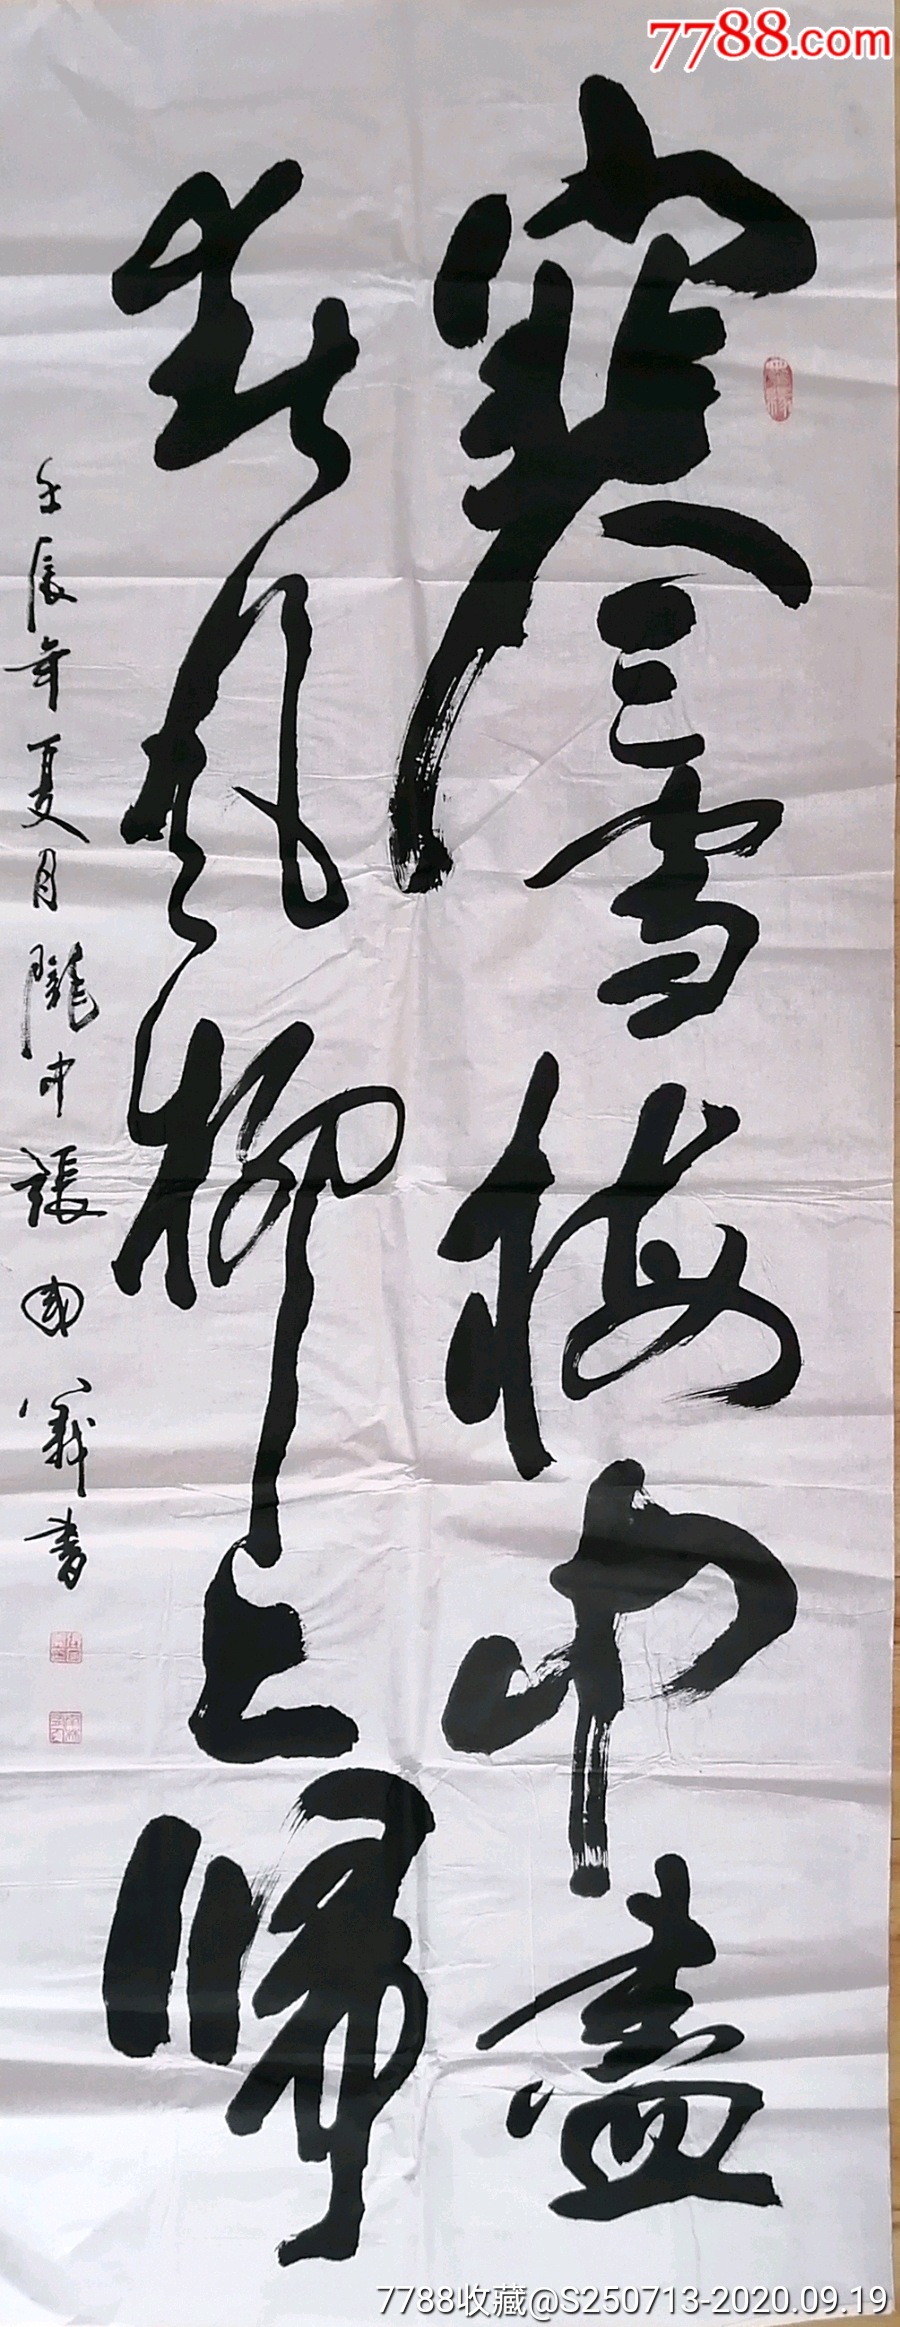 7788.com
寒雪梅中盡
春風柳上歸
壬辰年夏月隴中張國義書
7788收藏@S250713-2020.09.19